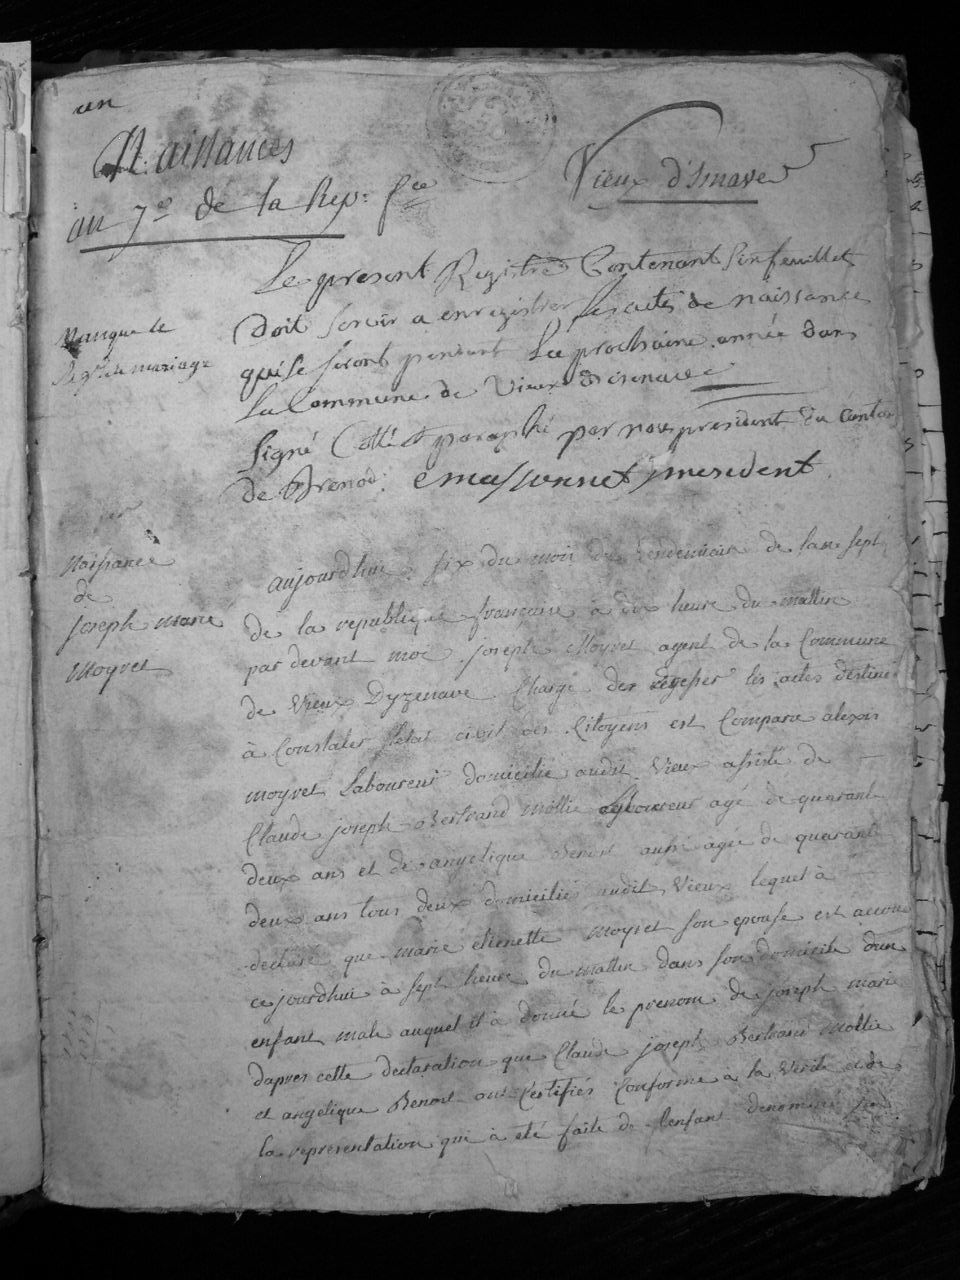 un
Naissances
an 7e de la Rep. fce
Vieux d'Isnave
Le present Registre Contenant six feuillet
doit servir a enregistrer les actes de naissances
qui se feront pendant La prochaine année dans
La Commune de Vieux disenave
Signé Cotté et paraphé par nous president du canton
de Brenod. president
Manque le
Reg. de mariage
Naissance
de
joseph marie
Moyret
aujourdhui six du mois de vendemiaire de lan sept
de la republique française à dix heure du mattin
par devant moi joseph Moyret agent de la Commune
de Vieux Dyzenave Chargé der les actes destiné
à Constater letat civil des Citoyens est Comparu alexis
moyret Laboureur domicilié audit Vieux assisté de
Claude joseph Bertrand Mollie Laboureur agé de quarante
deux ans et de angelique Benoit aussi agée de quarant
deux ans tous deux domicilié audit Vieux lequel à
declaré que marie etienette moyret son epouse est accou
ce jourdhui à sept heure du mattin dans son domicile dun
enfant male auquel il à donné le prenom de joseph marie
dapres cette declaration que Claude joseph Bertrand Mollie
et angelique Benoit ont Certifiés Conforme a la Verité et de
la representation qui à eté faite de lenfant denommé